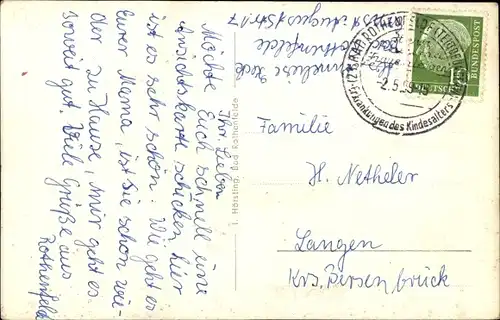 Ihr Lieben
Möchte Euch schnell eine
Ansichtskarte schicken, hier
ist es sehr schön. Wie geht es
Eurer Mama, ist sie schon wie-
der zu Hause, mir geht es
soweit gut. Viele Grüße aus
Rothenfelde
I. Hörstling, Bad Rothenfelde
Rothenfelde
BAD ROTHENFELDE
2.5.
Erkrankungen des Kindesalters
DEUTSCHE BUNDESPOST
Familie
H. Netheler
Langen
Krs. Bersenbrück